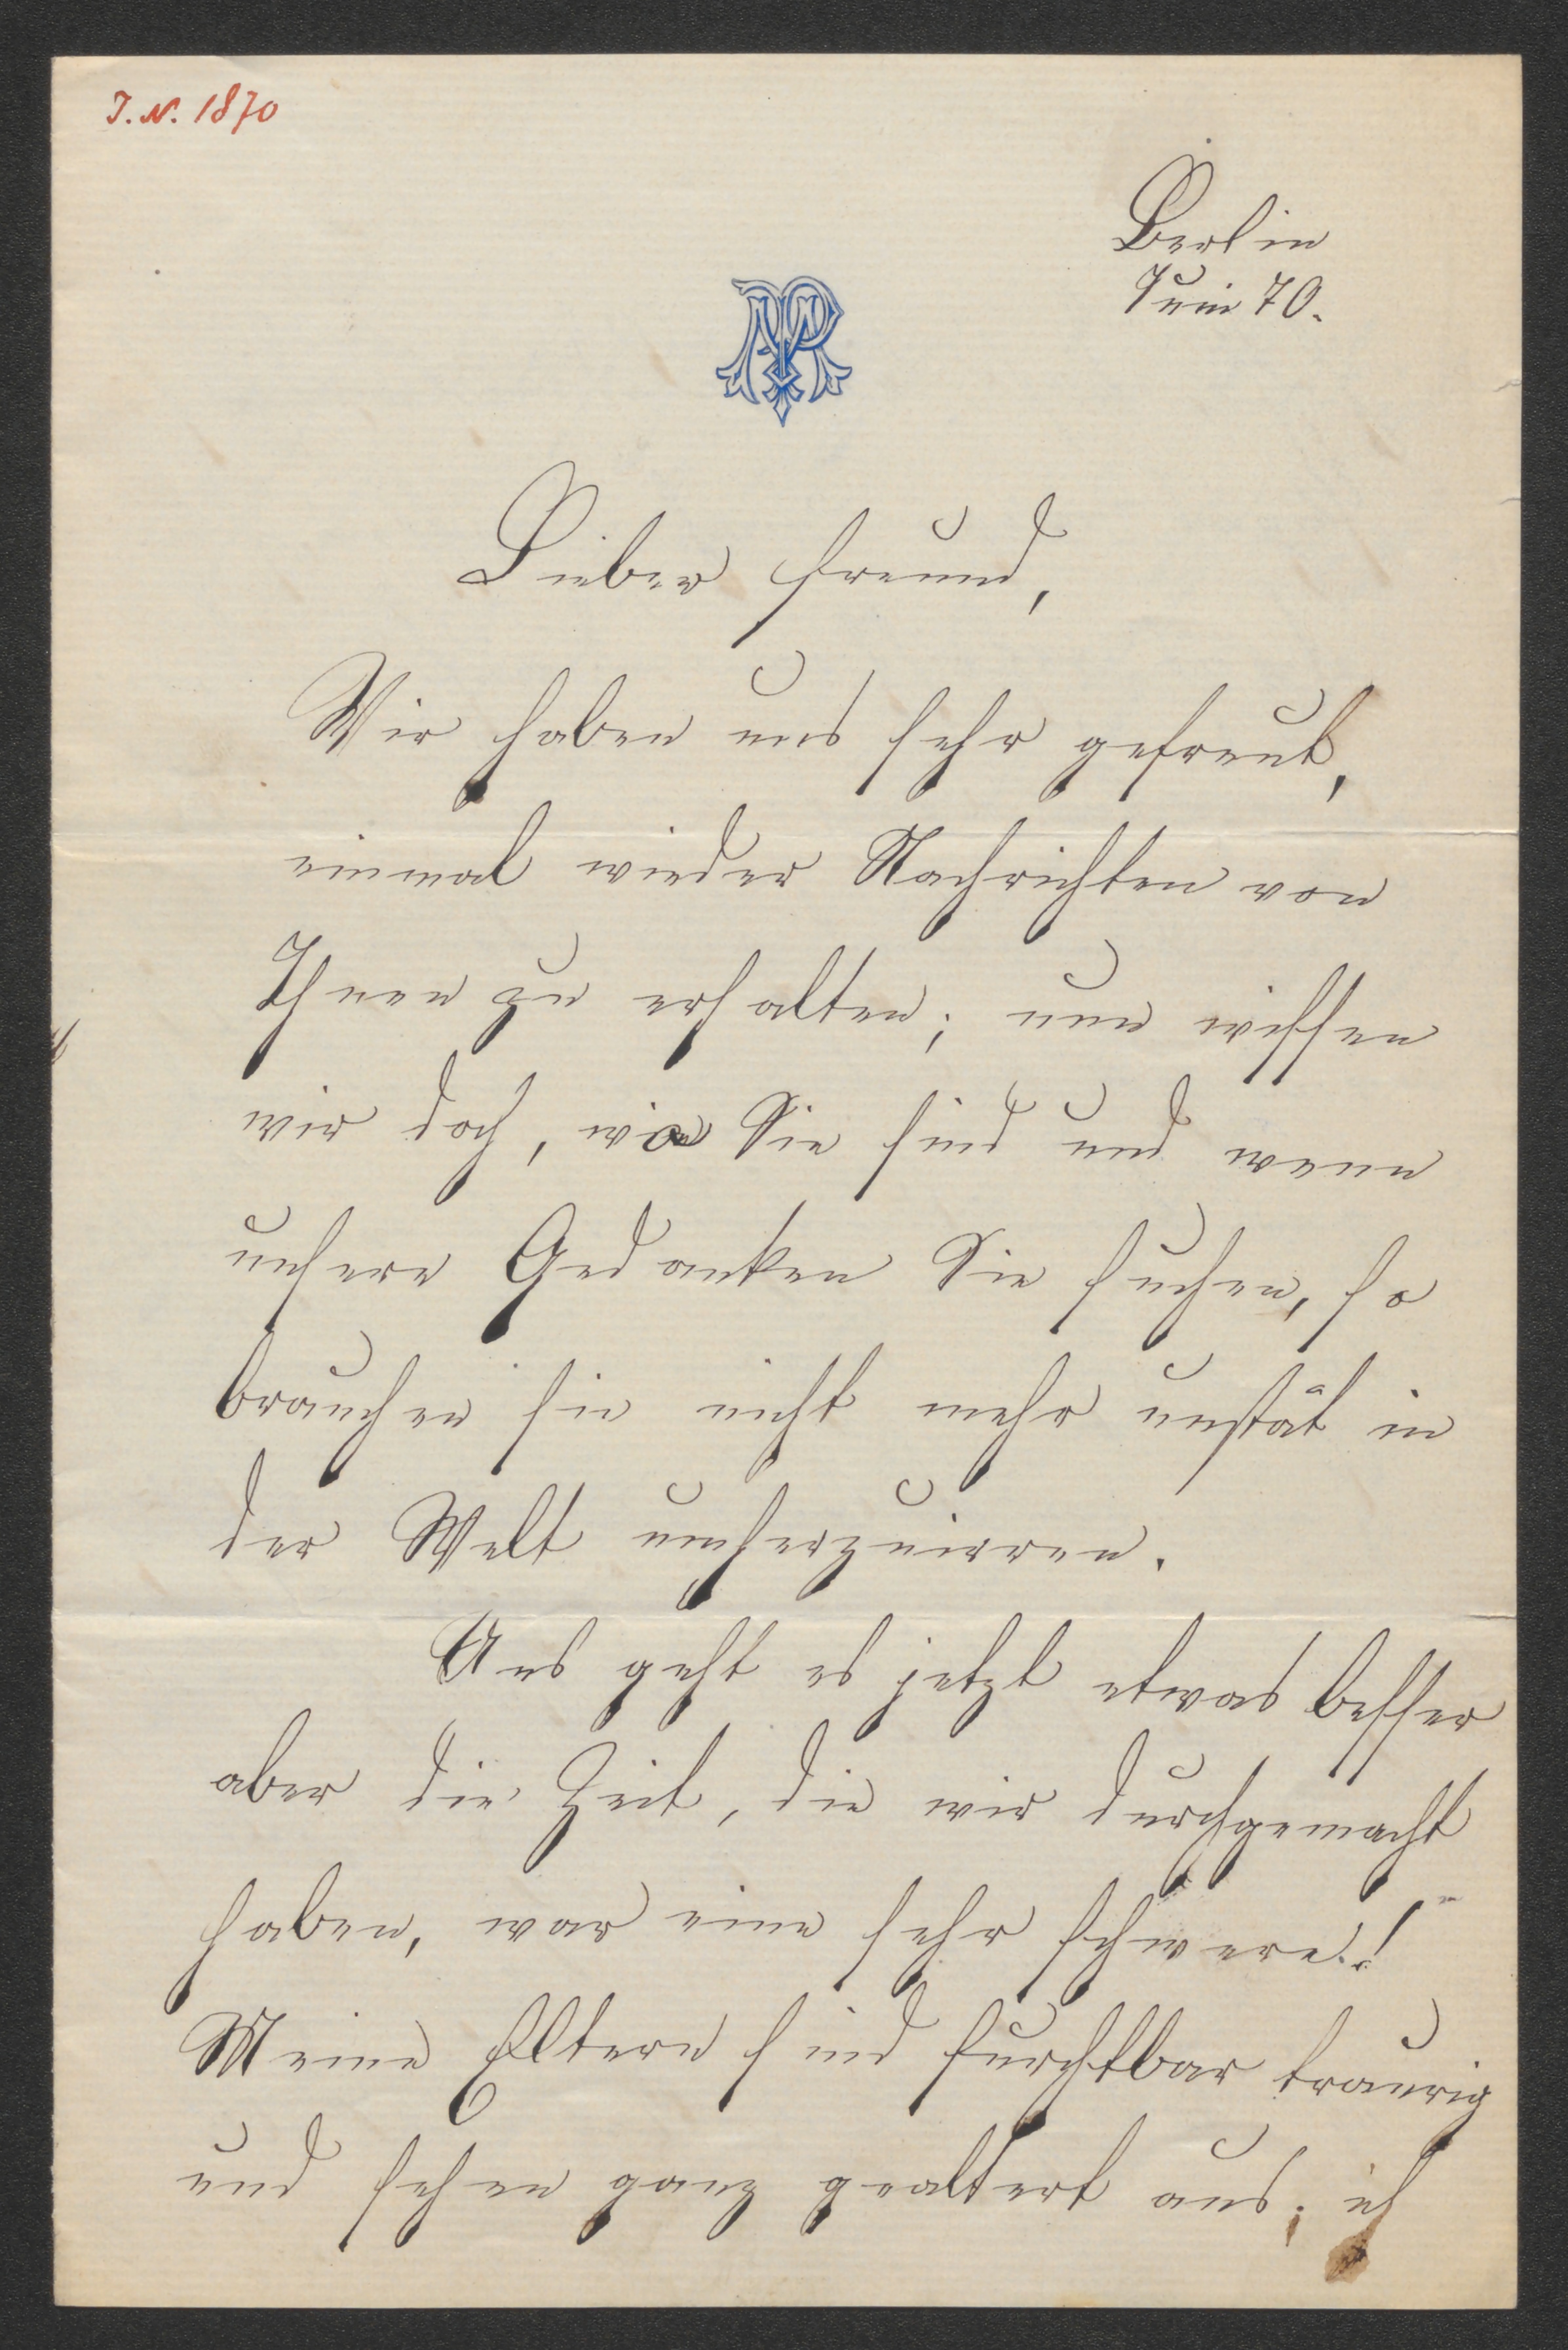 J. N. 1870
Berlin
Juni 70.
Lieber Freund,
Wir haben uns sehr gefreut,
einmal wieder Nachrichten von
Ihnen zu erhalten; nun wissen
wir doch, wo Sie sind und wenn
unsere Gedanken Sie suchen, so
brauchen sie nicht mehr unstät in
der Welt umherzuirren.
Uns geht es jetzt etwas besser
aber die Zeit, die wir durchgemacht
haben, war eine sehr schwere!
Meine Eltern sind furchtbar traurig
und sehen ganz gealtert aus; ich